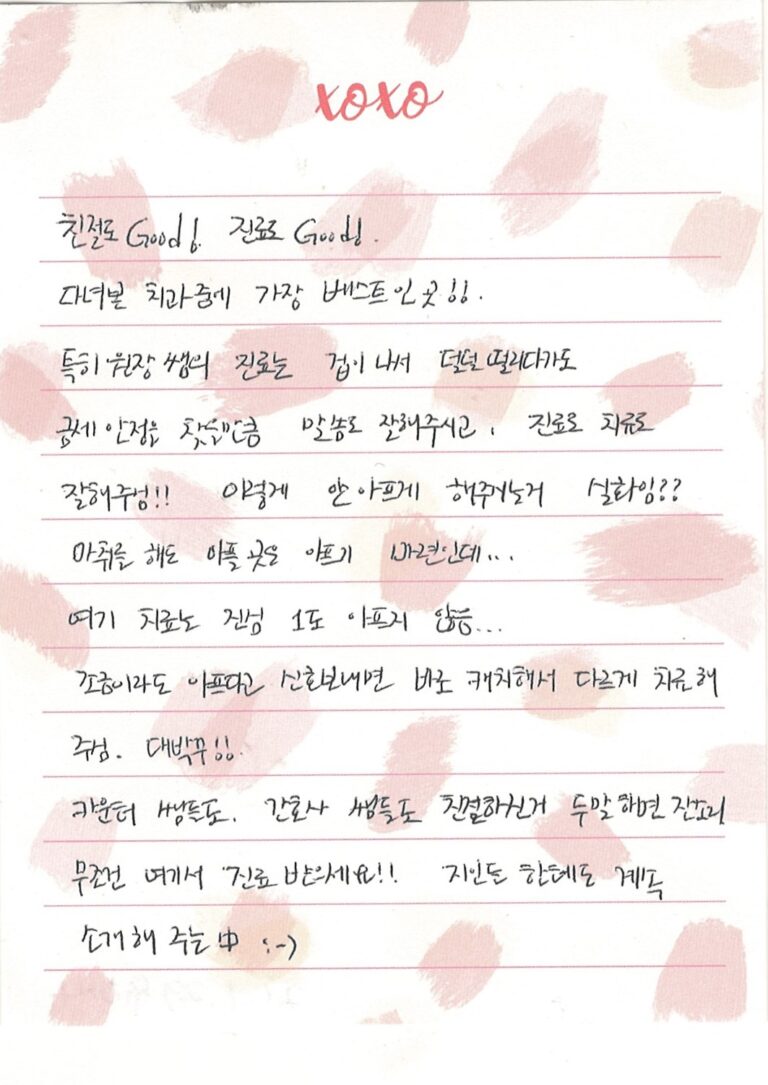 xoxo
친절도 Good! 진료도 Good!.
다녀본 치과중에 가장 베스트인 곳!!.
특히 원장쌤의 진료는 겁이 나서 덜덜 떨리다가도
금세 안정을 찾을만큼 말씀도 잘해주시고, 진료도 치료도
잘해주심!! 이렇게 안아프게 해주시는거 실화임??
마취를 해도 아플 곳은 아프기 마련인데...
여기 치료는 진심 1도 아프지 않음...
조금이라도 아프다고 신호보내면 바로 캐치해서 다르게 치료해
주심. 대박꾸!!.
카운터 쌤들도, 간호사 쌤들도 친절하신거 두말하면 잔소리
무조건 여기서 진료 받으세요!! 지인들 한테도 계속
소개해 주는 中 :-)